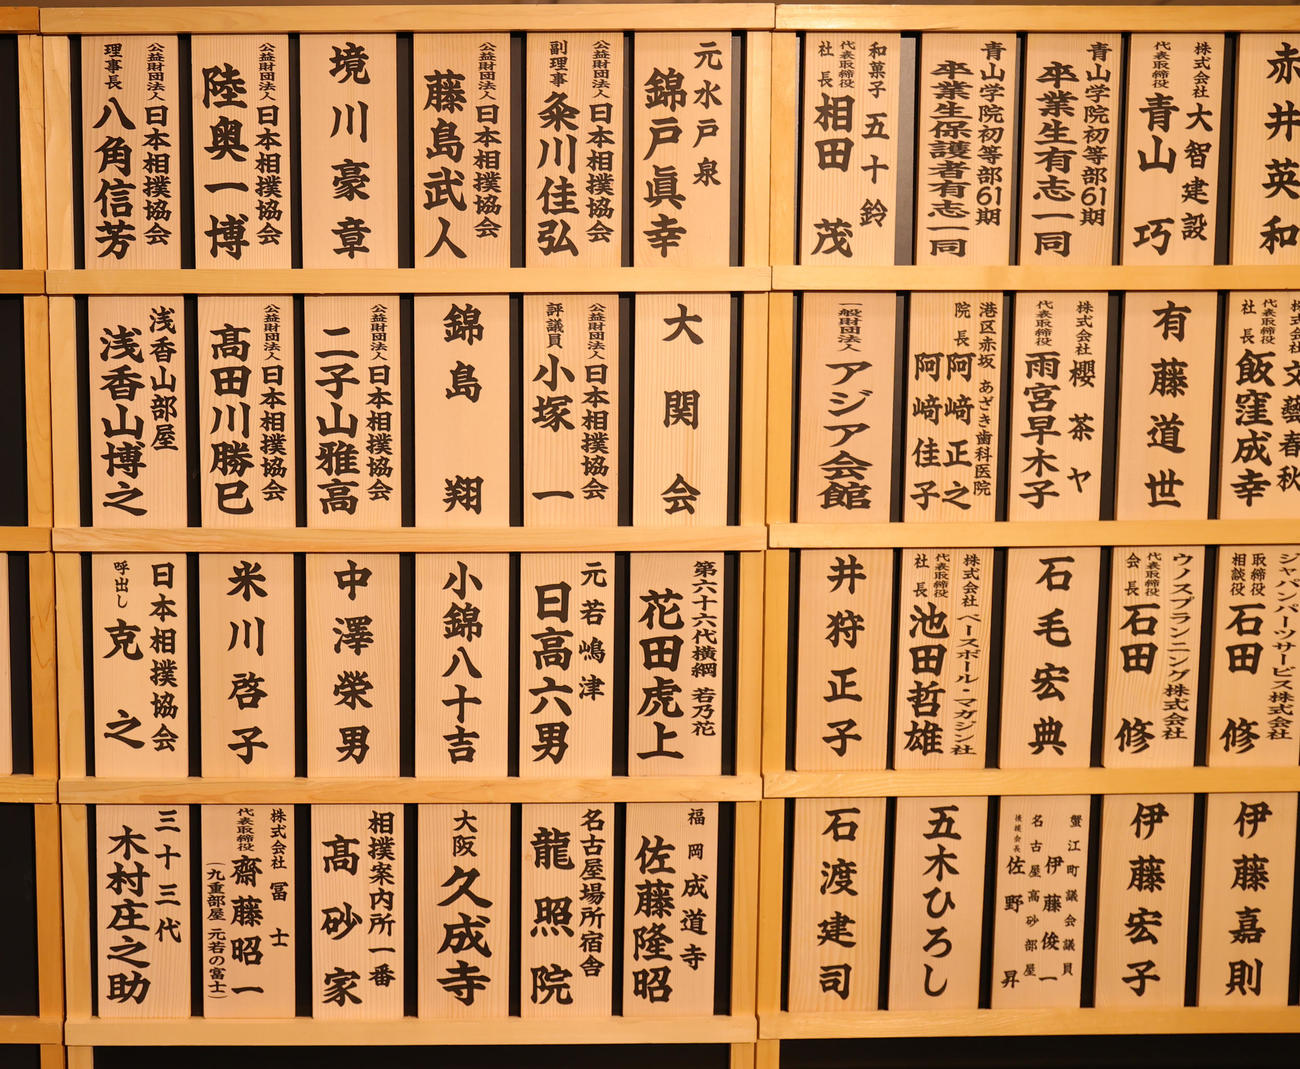 赤井英和
株式会社 大智建設
代表取締役 青山 巧
青山学院初等部61期
卒業生有志一同
青山学院初等部61期
卒業生保護者有志一同
和菓子 五十鈴
代表取締役
社長 相田 茂
株式会社 文藝春秋
代表取締役
社長 飯窪成幸
有藤道世
株式会社 櫻茶ヤ
代表取締役 雨宮早木子
港区赤坂 あざき歯科医院
院長 阿﨑正之
阿﨑佳子
一般財団法人 アジア会館
ジャパンパーツサービス株式会社
取締役
相談役 石田 修
ウノスプランニング株式会社
代表取締役
会長 石田 修
石毛宏典
株式会社 ベースボール・マガジン社
代表取締役
社長 池田哲雄
井狩正子
伊藤嘉則
伊藤宏子
蟹江町議会議員
伊藤俊一
名古屋高砂部屋
後援会長 佐野 昇
五木ひろし
石渡建司
元水戸泉
錦戸眞幸
公益財団法人 日本相撲協会
副理事 粂川佳弘
公益財団法人 日本相撲協会
藤島武人
境川豪章
公益財団法人 日本相撲協会
陸奥一博
公益財団法人 日本相撲協会
理事長 八角信芳
大関会
公益財団法人 日本相撲協会
評議員 小塚 一
錦島 翔
公益財団法人 日本相撲協会
二子山雅高
公益財団法人 日本相撲協会
髙田川勝巳
浅香山部屋
浅香山博之
第六十六代横綱 若乃花
花田虎上
元若嶋津
日高六男
小錦八十吉
中澤榮男
米川啓子
日本相撲協会
呼出し 克之
福岡 成道寺
佐藤隆昭
名古屋場所宿舎
龍照院
大阪 久成寺
相撲案内所一番
髙砂家
株式会社 冨士
代表取締役 齋藤昭一
(九重部屋 元若の富士)
三十三代
木村庄之助